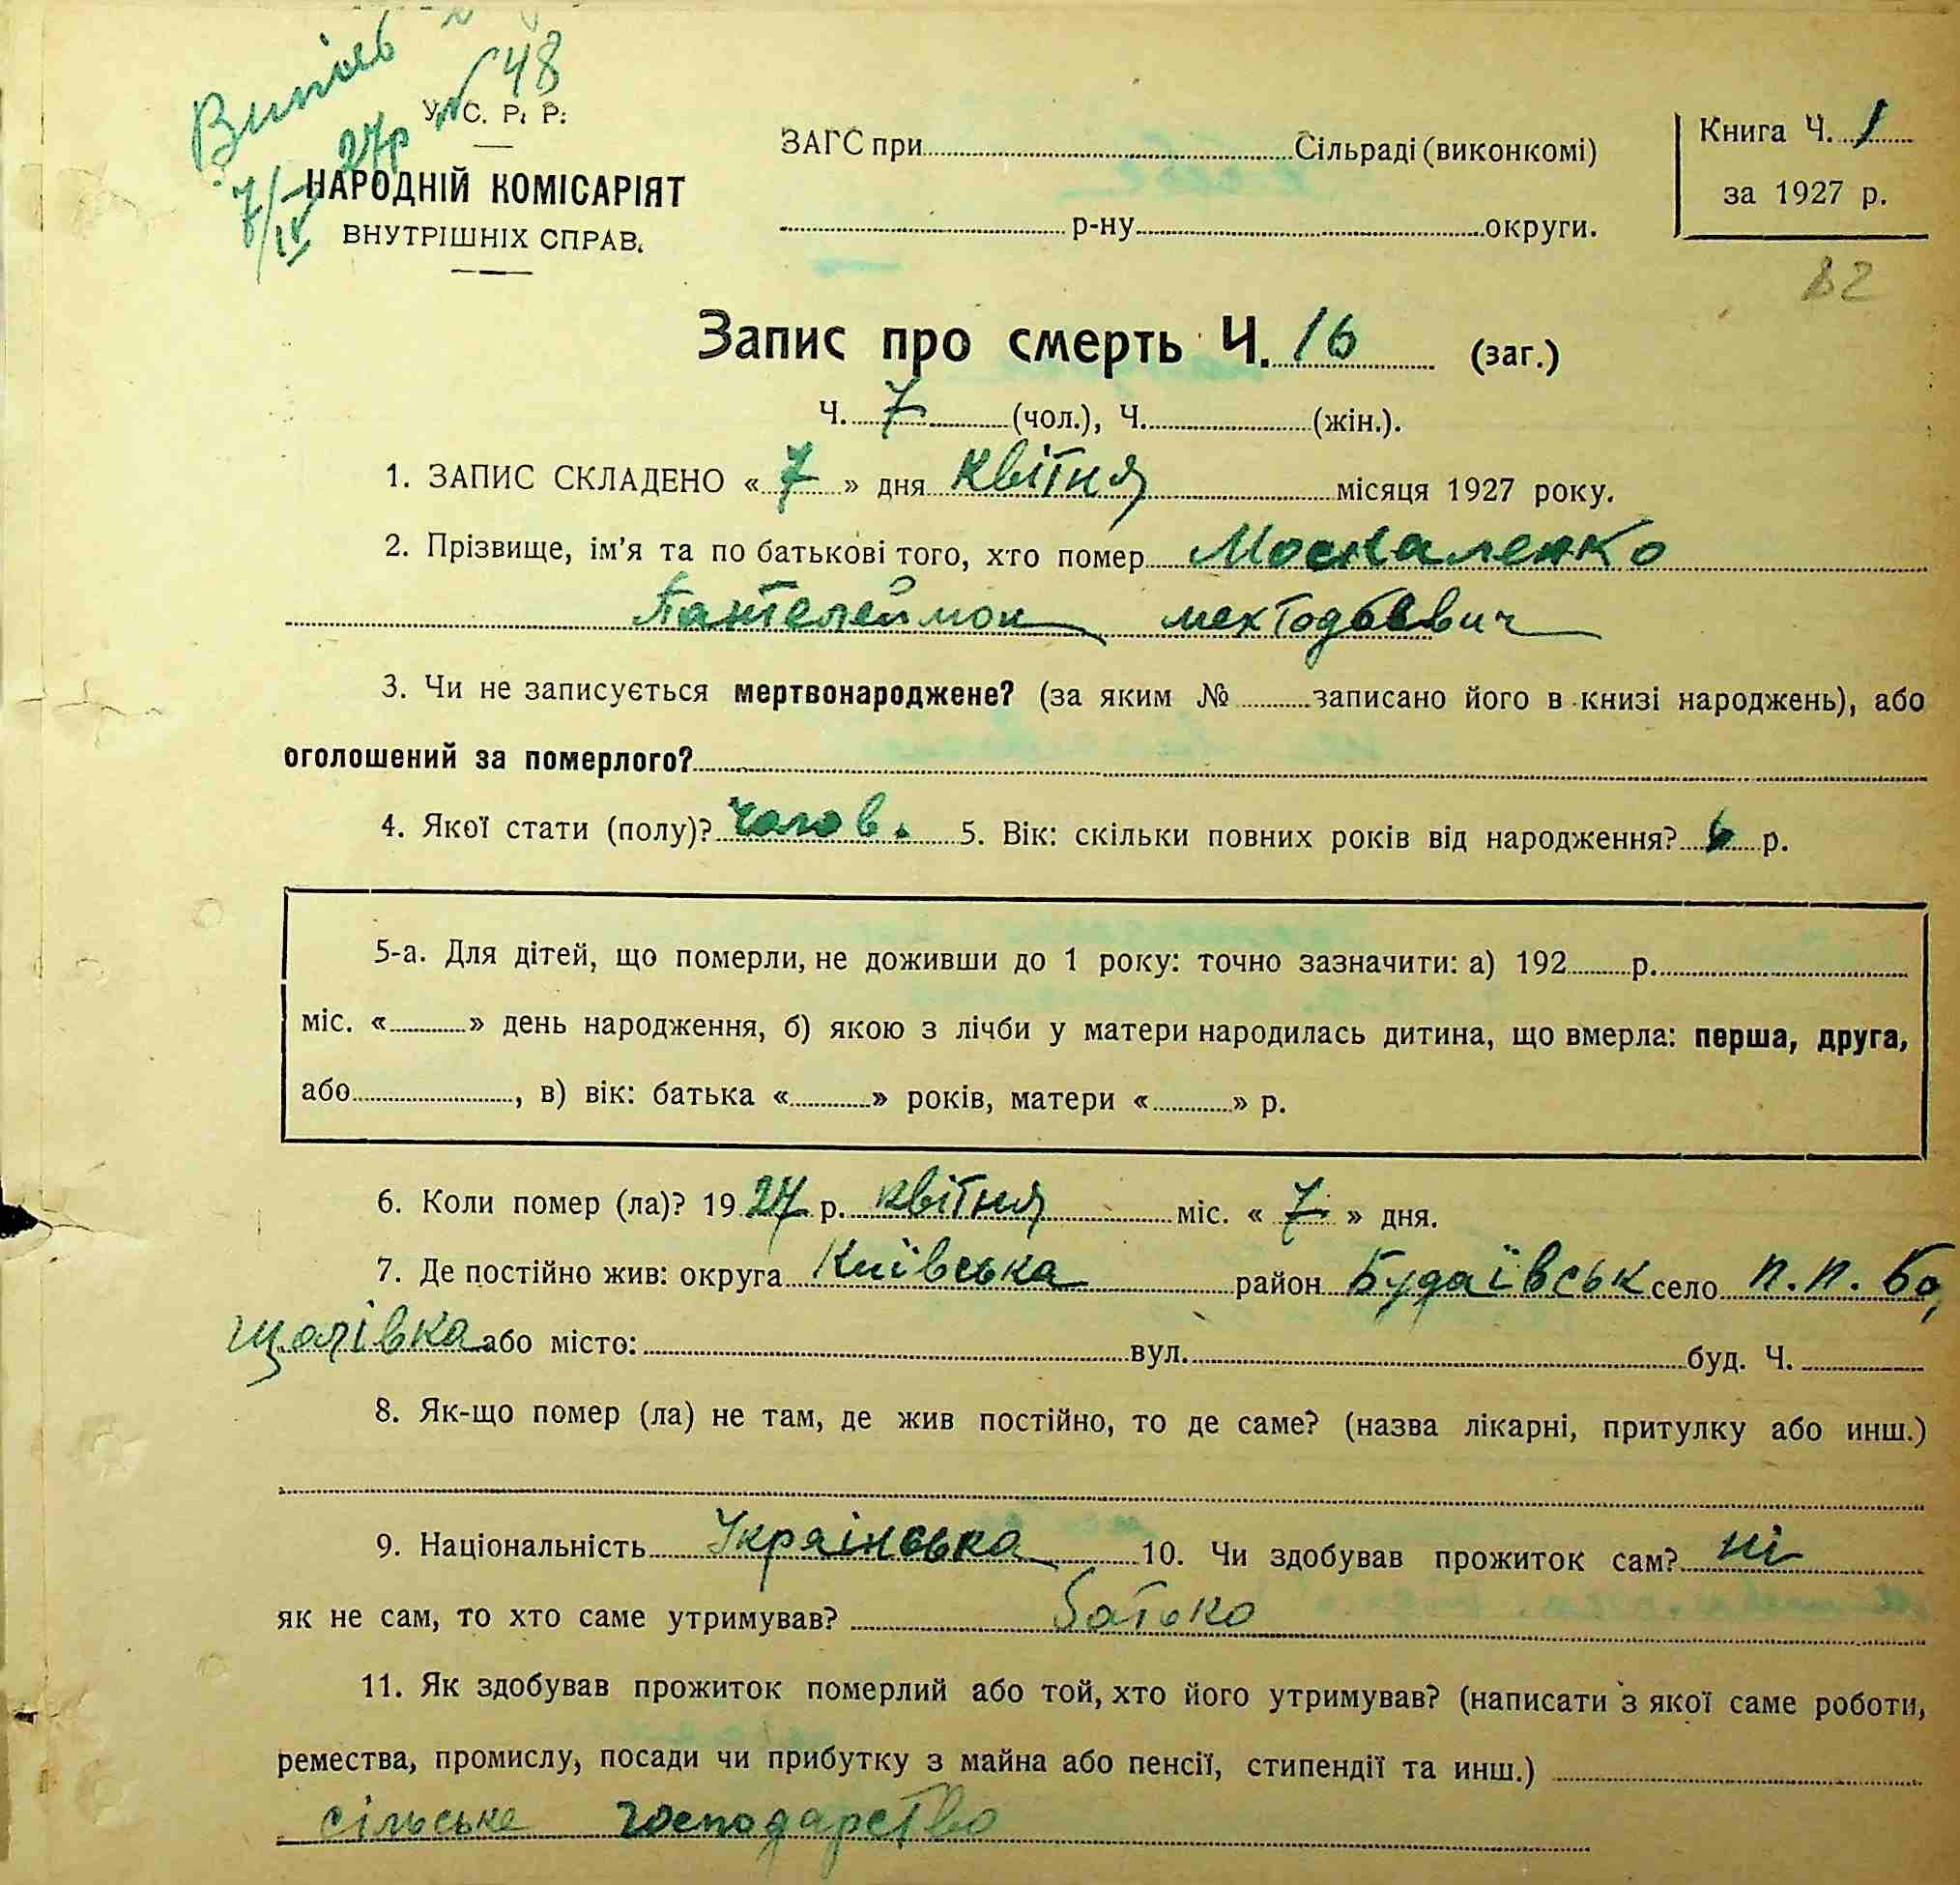 Випись
№ 48
27р
7/IV
У. С. Р. Р.
НАРОДНІЙ КОМІСАРІЯТ
ВНУТРІШНІХ СПРАВ.
ЗАГС при Сільраді (виконкомі)
р-ну округи.
Книга Ч. 1
за 1927 р.
82
Запис про смерть Ч. 16 (заг.)
Ч. 7 (чол.), Ч. (жін.).
1. ЗАПИС СКЛАДЕНО « 7 » дня квітня місяця 1927 року.
2. Прізвище, ім’я та по батькові того, хто помер Москаленко
Пантелеймон
3. Чи не записується мертвонароджене? (за яким № записано його в книзі народжень), або
оголошений за померлого?
4. Якої стати (полу)? чолов. 5. Вік: скільки повних років від народження? 6 р.
5-а. Для дітей, що померли, не доживши до 1 року: точно зазначити: а) 192 р.
міс. « » день народження, б) якою з лічби у матери народилась дитина, що вмерла: перша, друга,
або , в) вік: батька « » років, матери « » р.
6. Коли помер (ла)? 19 27 р. квітня міс. « 7 » дня.
7. Де постійно жив: округа Київська район Будаївськ село п.п. Бо,
щагівка або місто: вул. буд. Ч.
8. Як-що помер (ла) не там, де жив постійно, то де саме? (назва лікарні, притулку або инш.)
9. Національність Українська 10. Чи здобував прожиток сам? ні
як не сам, то хто саме утримував? батько
11. Як здобував прожиток померлий або той, хто його утримував? (написати з якої саме роботи,
ремества, промислу, посади чи прибутку з майна або пенсії, стипендії та инш.)
сільське господарство